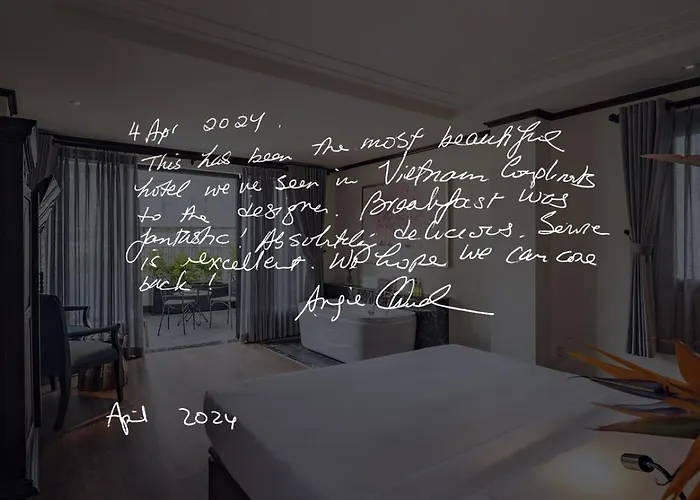 4 Apr 2024.
This has been the most beautiful
hotel we've seen in Vietnam Compliments
to the designer. Breakfast was
fantastic! Absolutely delicious. Service
is excellent. We hope we can come
back!
Angie
April 2024